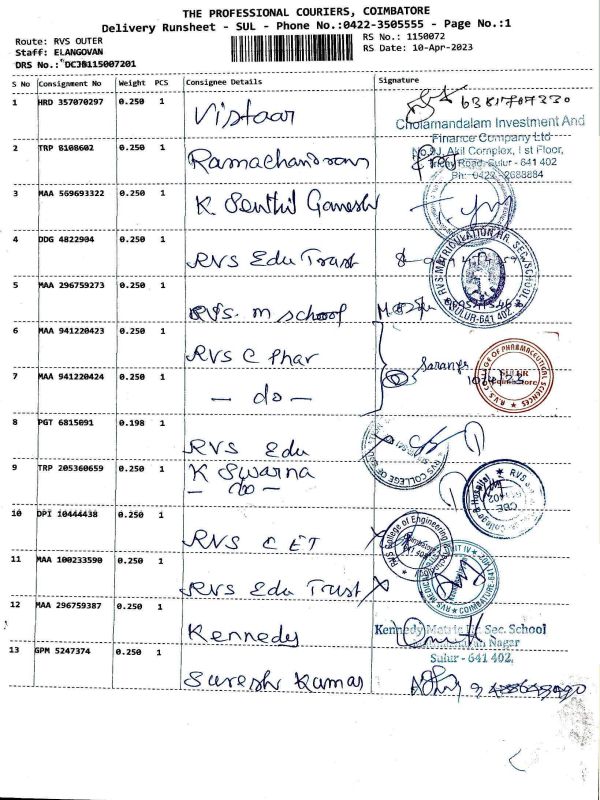 THE PROFESSIONAL COURIERS, COIMBATORE
Delivery Runsheet - SUL - Phone No.:0422-3505555 - Page No.:1
Route: RVS OUTER
RS No.: 1150072
Staff: ELANGOVAN
RS Date: 10-Apr-2023
DRS No.: DCJB115007201
S No Consignment No Weight PCS Consignee Details Signature
1 HRD 357070297 0.250 1 Vistaar
Cholamandalam Investment And
Finance Company Ltd
2 TRP 8108602 0.250 1 Ramachandran
Akil Complex, I st Floor,
Road, Sulur - 641 402
Ph: 0422 - 2688884
3 MAA 569693322 0.250 1 K Senthil Ganesh
4 DDG 4822904 0.250 1 RVS Edu Trust
RVS MATRICULATION HR. SEC. SCHOOL
SULUR-641 402.
5 MAA 296759273 0.250 1 RVS. m school
6 MAA 941220423 0.250 1 RVS C Phar
7 MAA 941220424 0.250 1 - do -
R.V.S. COLLEGE OF PHARMACEUTICAL SCIENCES
SULUR
Coimbatore
8 PGT 6815091 0.198 1 RVS Edu
RVS COLLEGE OF
9 TRP 205360659 0.250 1 K Swarna
- do -
10 DPI 10444438 0.250 1 RVS CET
RVS College of Engineering
11 MAA 100233590 0.250 1 RVS Edu Trust
12 MAA 296759387 0.250 1 Kennedy
Kennedy Matric Hr. Sec. School
Nagar
Sulur - 641 402,
13 GPM 5247374 0.250 1 Suresh Kumar